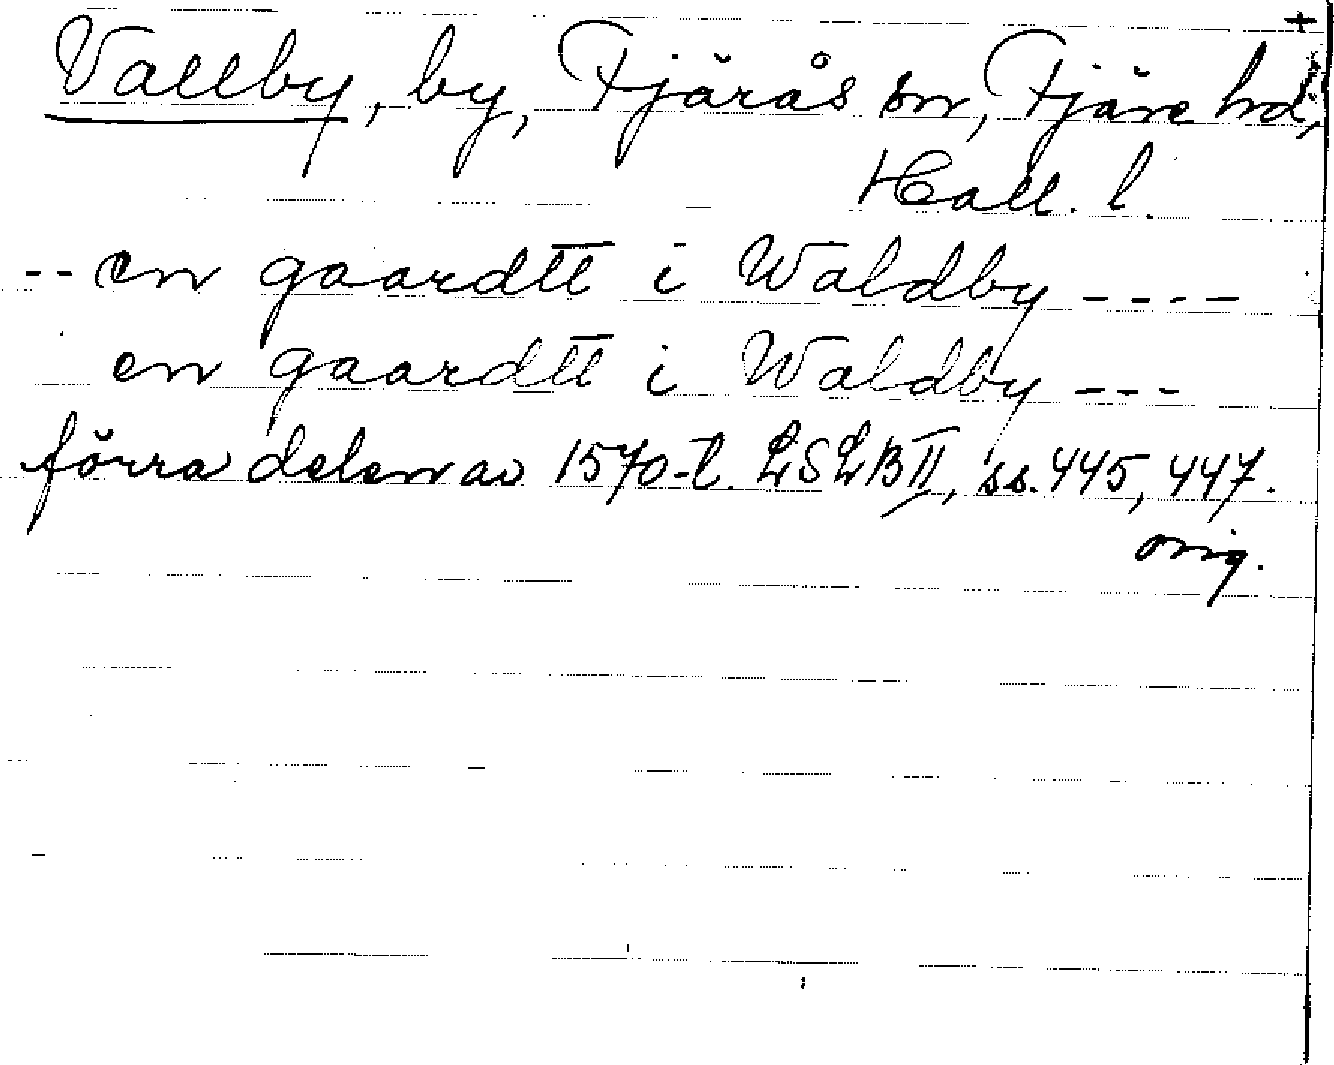 +
Vallby, by, Fjärås sn, Fjäre hd,
Hall. l.
-- en gaardtt i Waldby ----
en gaardtt i Waldby ---
förra delen av 1570-t. LSLB II, ss. 445, 447.
orig.